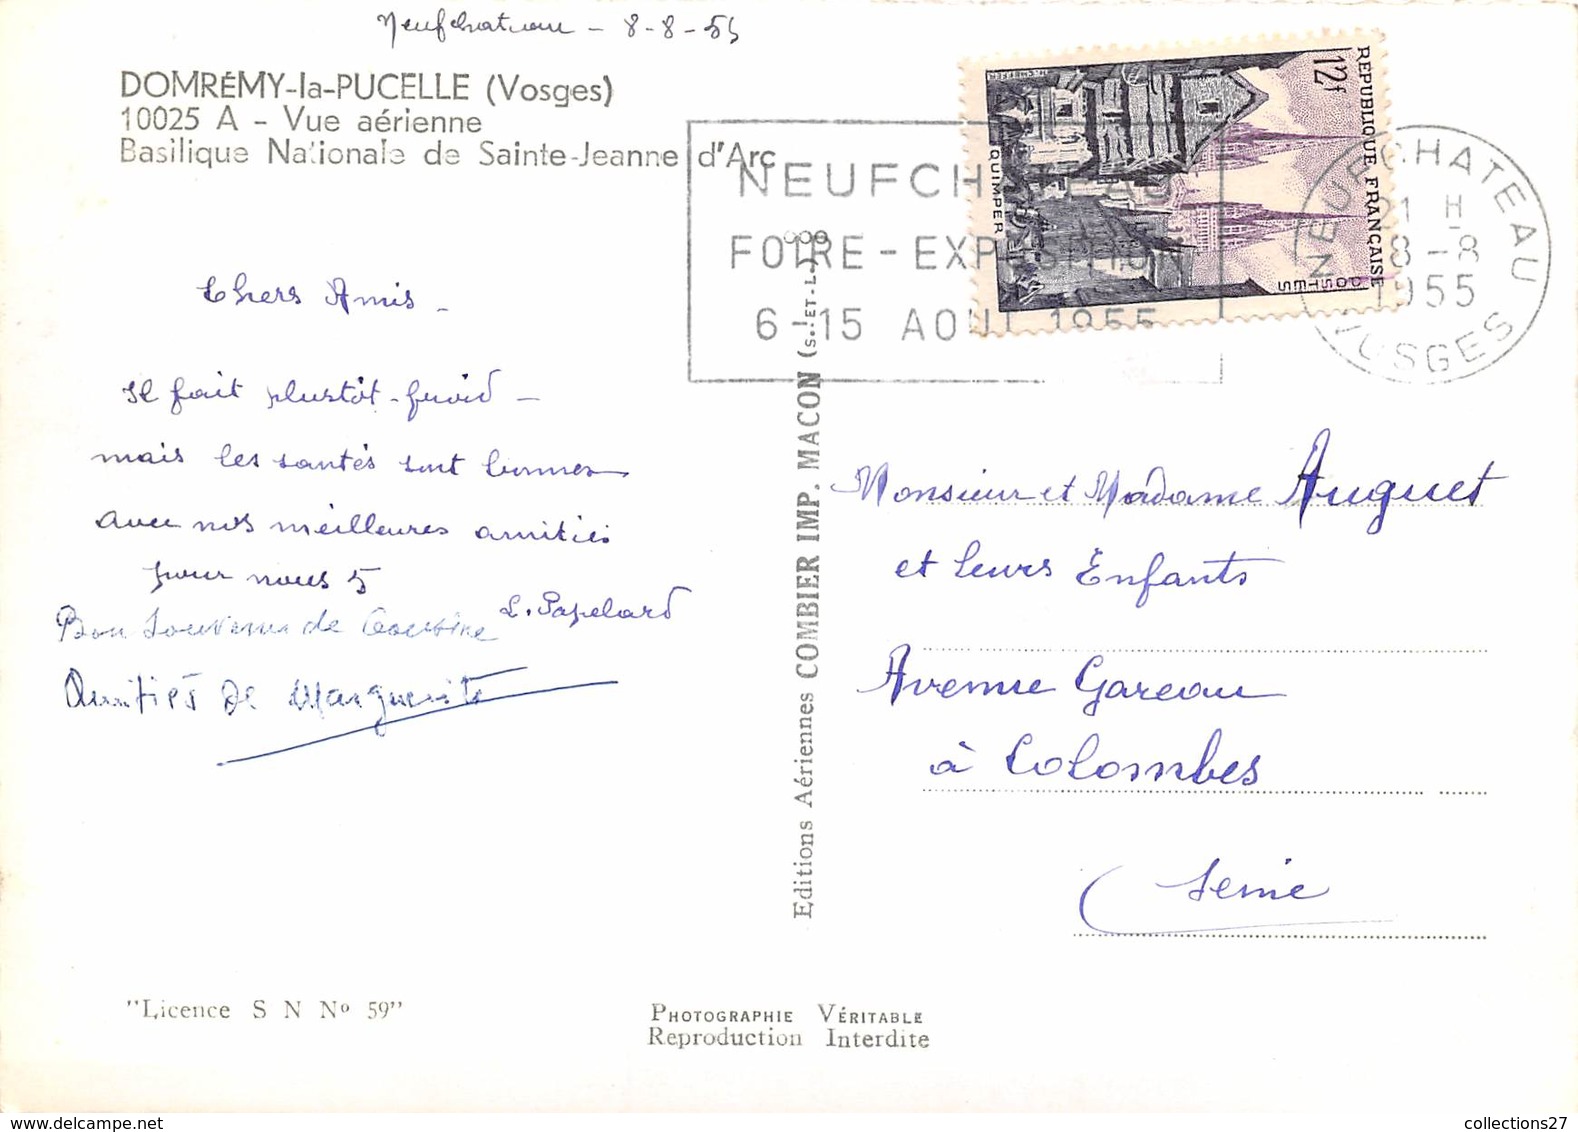 Neufchateau - 8-8-55
DOMRÉMY-la-PUCELLE (Vosges)
10025 A - Vue aérienne
Basilique Nationale de Sainte-Jeanne d'Arc
NEUFCHATEAU
FOIRE-EXPOSITION
6-15 AOUT 1955
12f
REPUBLIQUE FRANÇAISE
POSTES
QUIMPER
NEUFCHATEAU
21 H
8-8
1955
VOSGES
Chers Amis -
Il fait plustôt froid -
mais les santés sont bonnes
avec nos meilleures amitiés
pour nous 5
L. Papelard
Bon Souvenir de
Amitiés de Marguerite
Editions Aériennes COMBIER IMP. MACON (S.-ET-L.)
Monsieur et Madame Auguet
et leurs Enfants
Avenue Gareau
à Colombes
Seine
"Licence S N Nº 59"
PHOTOGRAPHIE VÉRITABLE
Reproduction Interdite
collections27